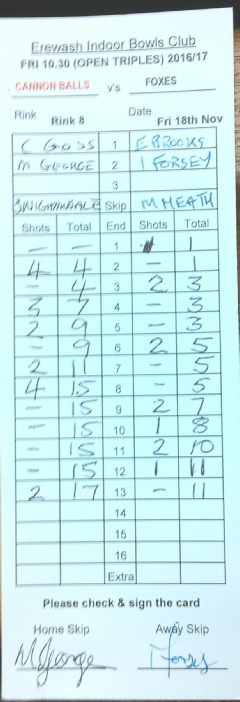 Erewash Indoor Bowls Club
FRI 10.30 (OPEN TRIPLES) 2016/17
CANNON BALLS v's FOXES
Rink Rink 8 Date Fri 18th Nov
C GOSS 1 E BROOKS
M GEORGE 2 I FORSEY
3
Skip M HEATH
Shots Total End Shots Total
— — 1 1 1
4 4 2 — 1
— 4 3 2 3
3 7 4 — 3
2 9 5 — 3
— 9 6 2 5
2 11 7 — 5
4 15 8 — 5
— 15 9 2 7
— 15 10 1 8
— 15 11 2 10
— 15 12 1 11
2 17 13 — 11
14
15
16
Extra
Please check & sign the card
Home Skip Away Skip
M George I Forsey